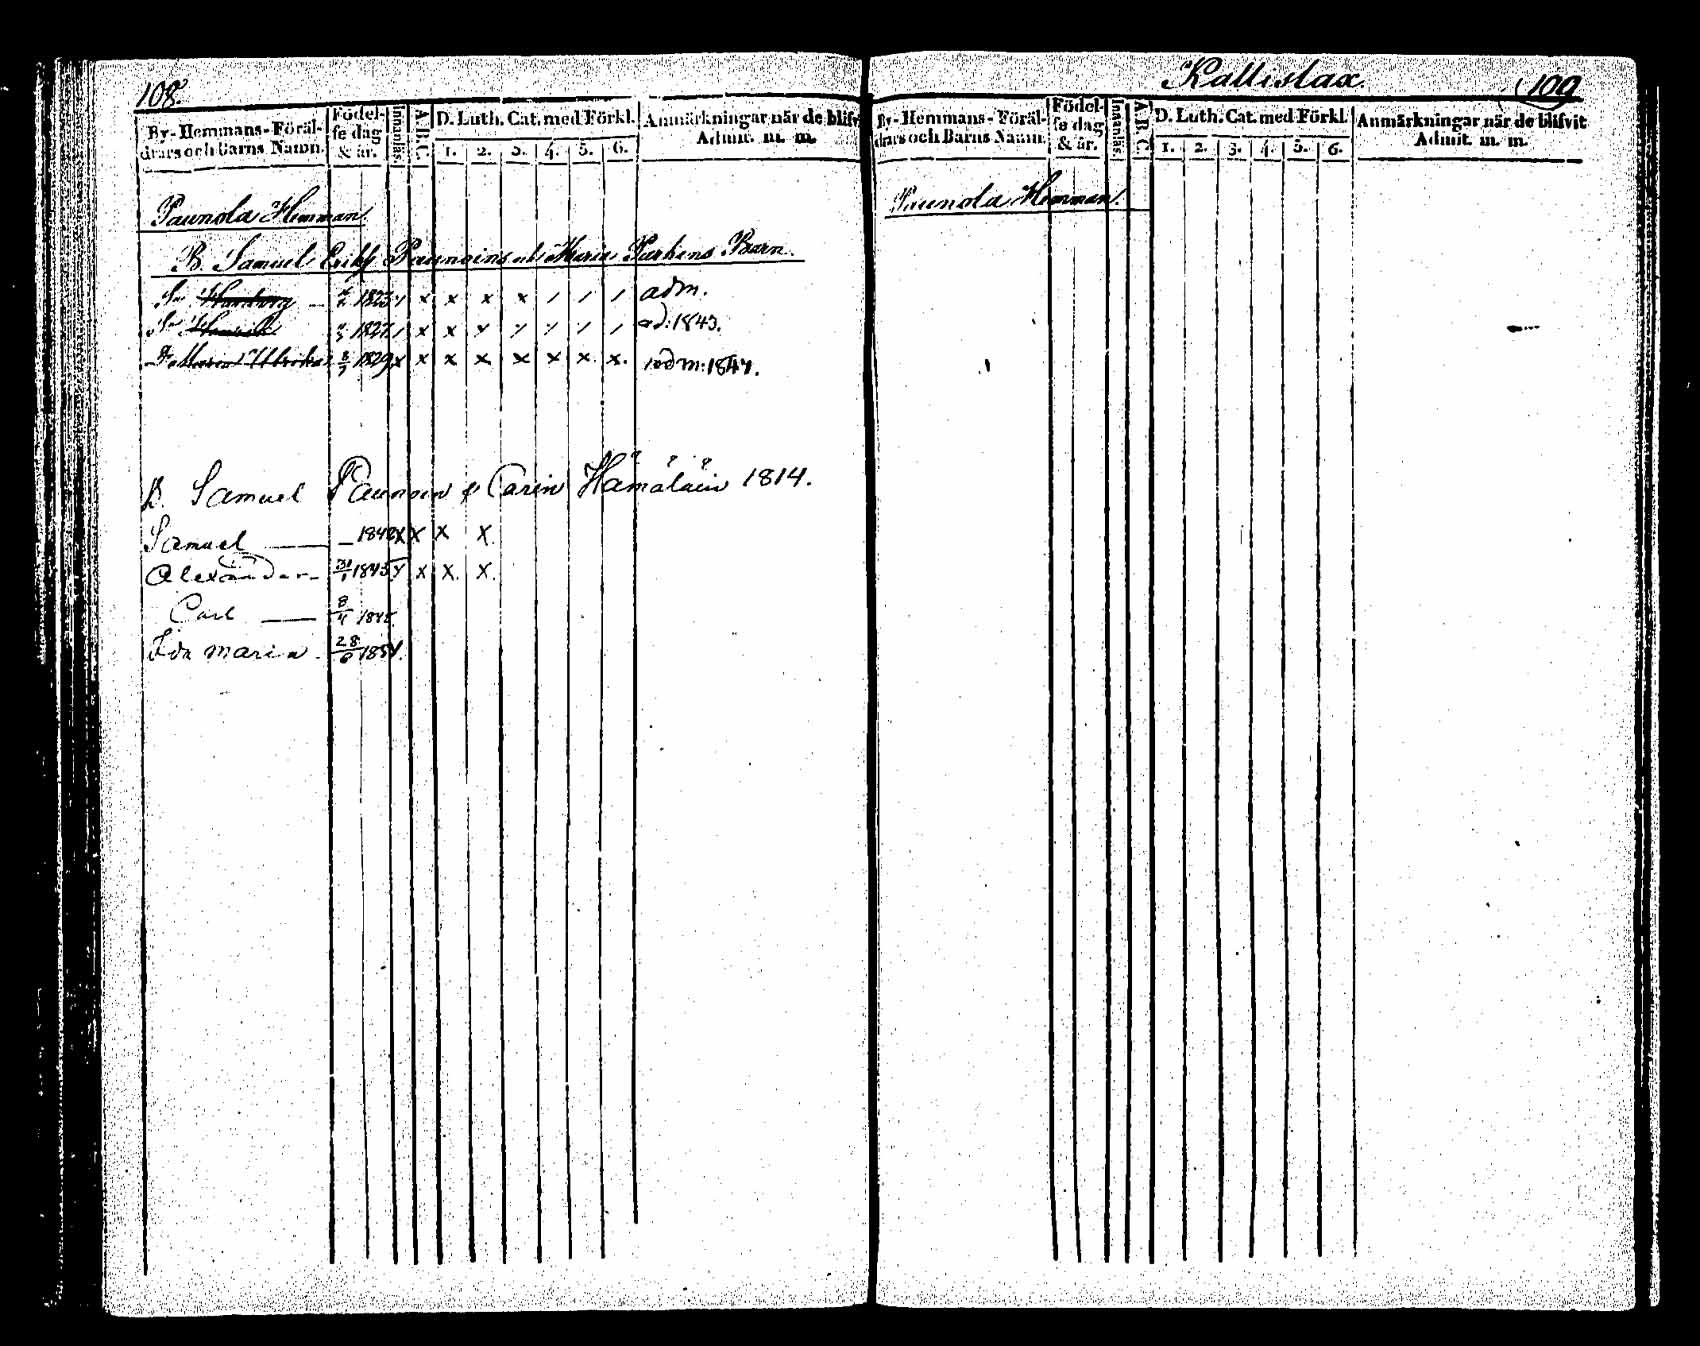 108.
By-Hemmans-Föräl-
drars och Barns Namn.
Födel-
se dag
& år.
Innanläs.
A.B.C.
D. Luth. Cat. med Förkl.
1. 2. 3. 4. 5. 6.
Anmärkningar när de blifv
Admit. m. m.
Paunola Hemman.
B. Samuel Eriks Paunoins och Maria Purkens Barn.
Sn 1823 / x x x x / / / adm.
Sn Henrik 1827 / x x x / / / / ad: 1843.
Dr Maria Ulrika 1829 x x x x x x x x. adm: 1847.
B. Samuel Paunoin & Carin Hämäläin 1814.
Samuel — 1842 x x x x
Alexander 1845 x x x. x.
Carl — 8/4
Ida maria. 28/6 1851.
Kallislax.
109
By-Hemmans-Föräl-
drars och Barns Namn.
Födel-
se dag
& år.
Innanläs.
A.B.C.
D. Luth. Cat. med Förkl.
1. 2. 3. 4. 5. 6.
Anmärkningar när de blifvit
Admit. m. m.
Paunola Hemman.